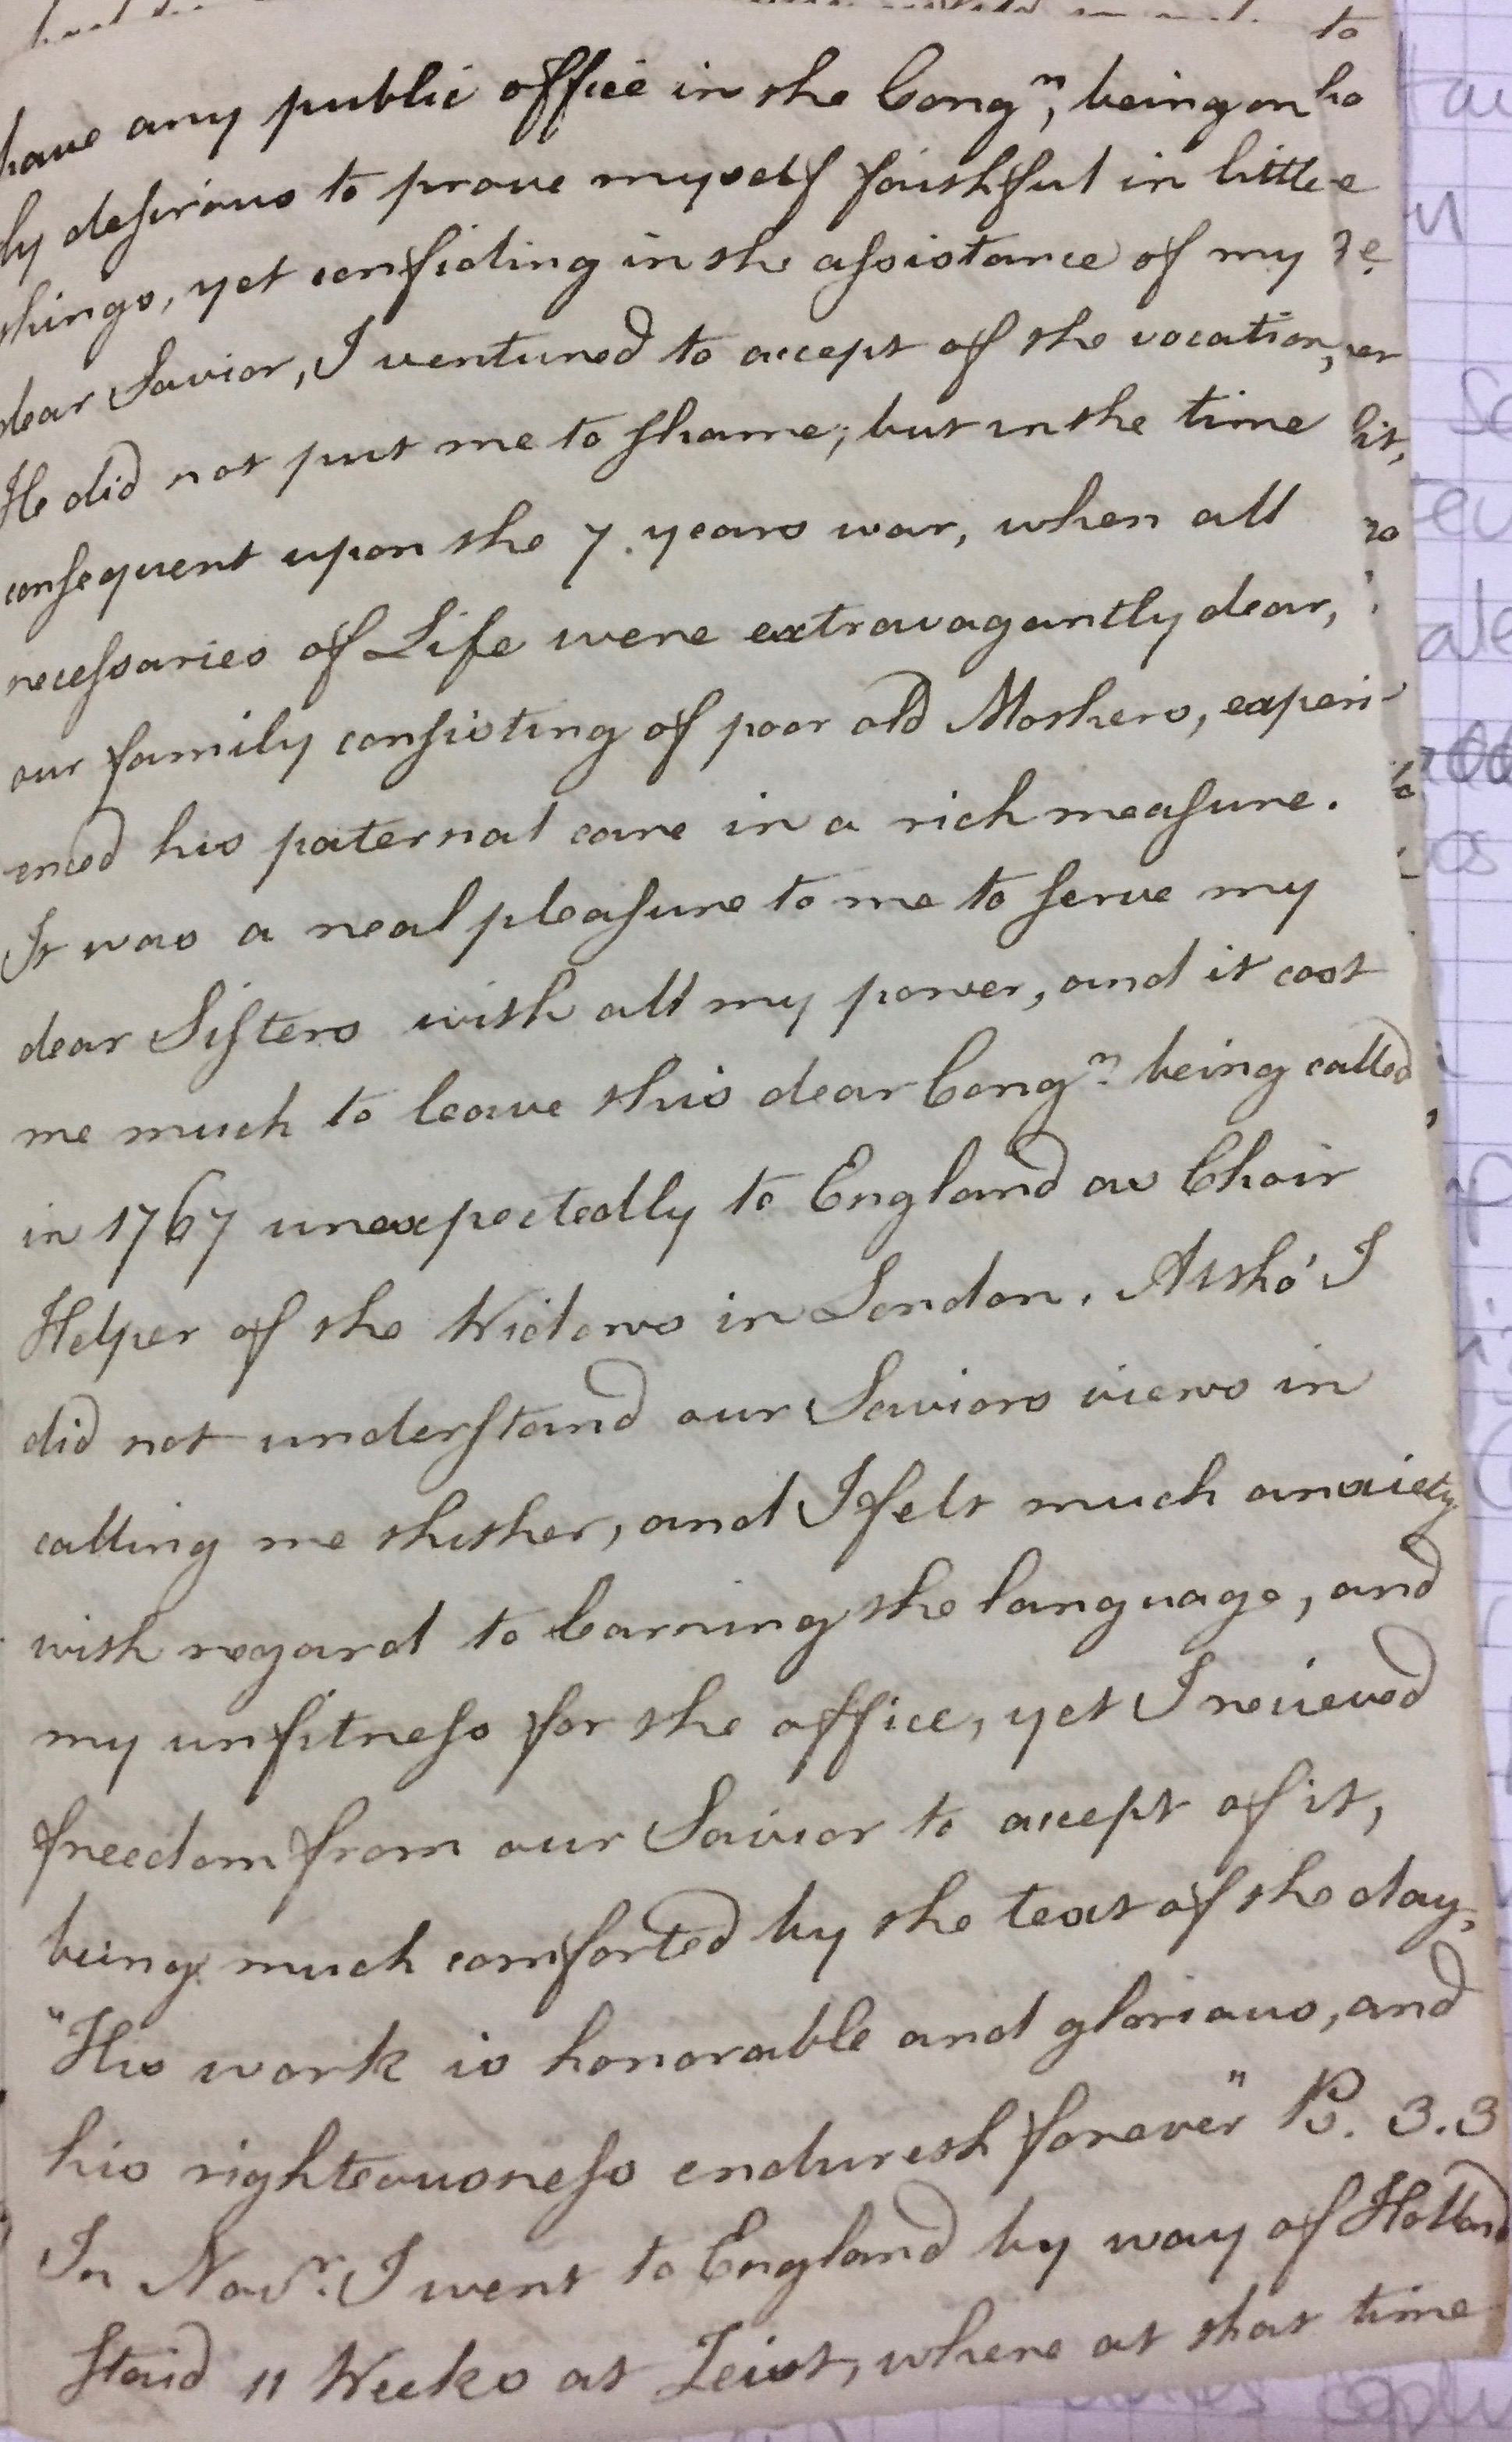 have any public office in the Congn, being on
ly desirous to prove myself faithful in little
things, yet confiding in the assistance of my
dear Savior, I ventured to accept of the vocation,
He did not put me to shame; but in the time
consequent upon the 7. years war, when all
necessaries of Life were extravagantly dear,
our family consisting of poor old Mothers, experi-
enced his paternal care in a rich measure.
It was a real pleasure to me to serve my
dear Sisters with all my power, and it cost
me much to leave this dear Congn. being called
in 1767 unexpectedly to England as Choir
Helper of the Widows in London. Altho' I
did not understand our Saviors views in
calling me thither, and I felt much anxiety
with regard to learning the language, and
my unfitness for the office, yet I recieved
freedom from our Savior to accept of it,
being much comforted by the text of the day,
"His work is honorable and glorious, and
his righteousness endureth forever" Ps. 3.3
In Novr. I went to England by way of Holland
staid 11 Weeks at Zeist, where at that time